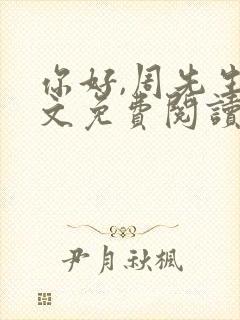 你好,周先生
文免費閱讀
尹月秋楓